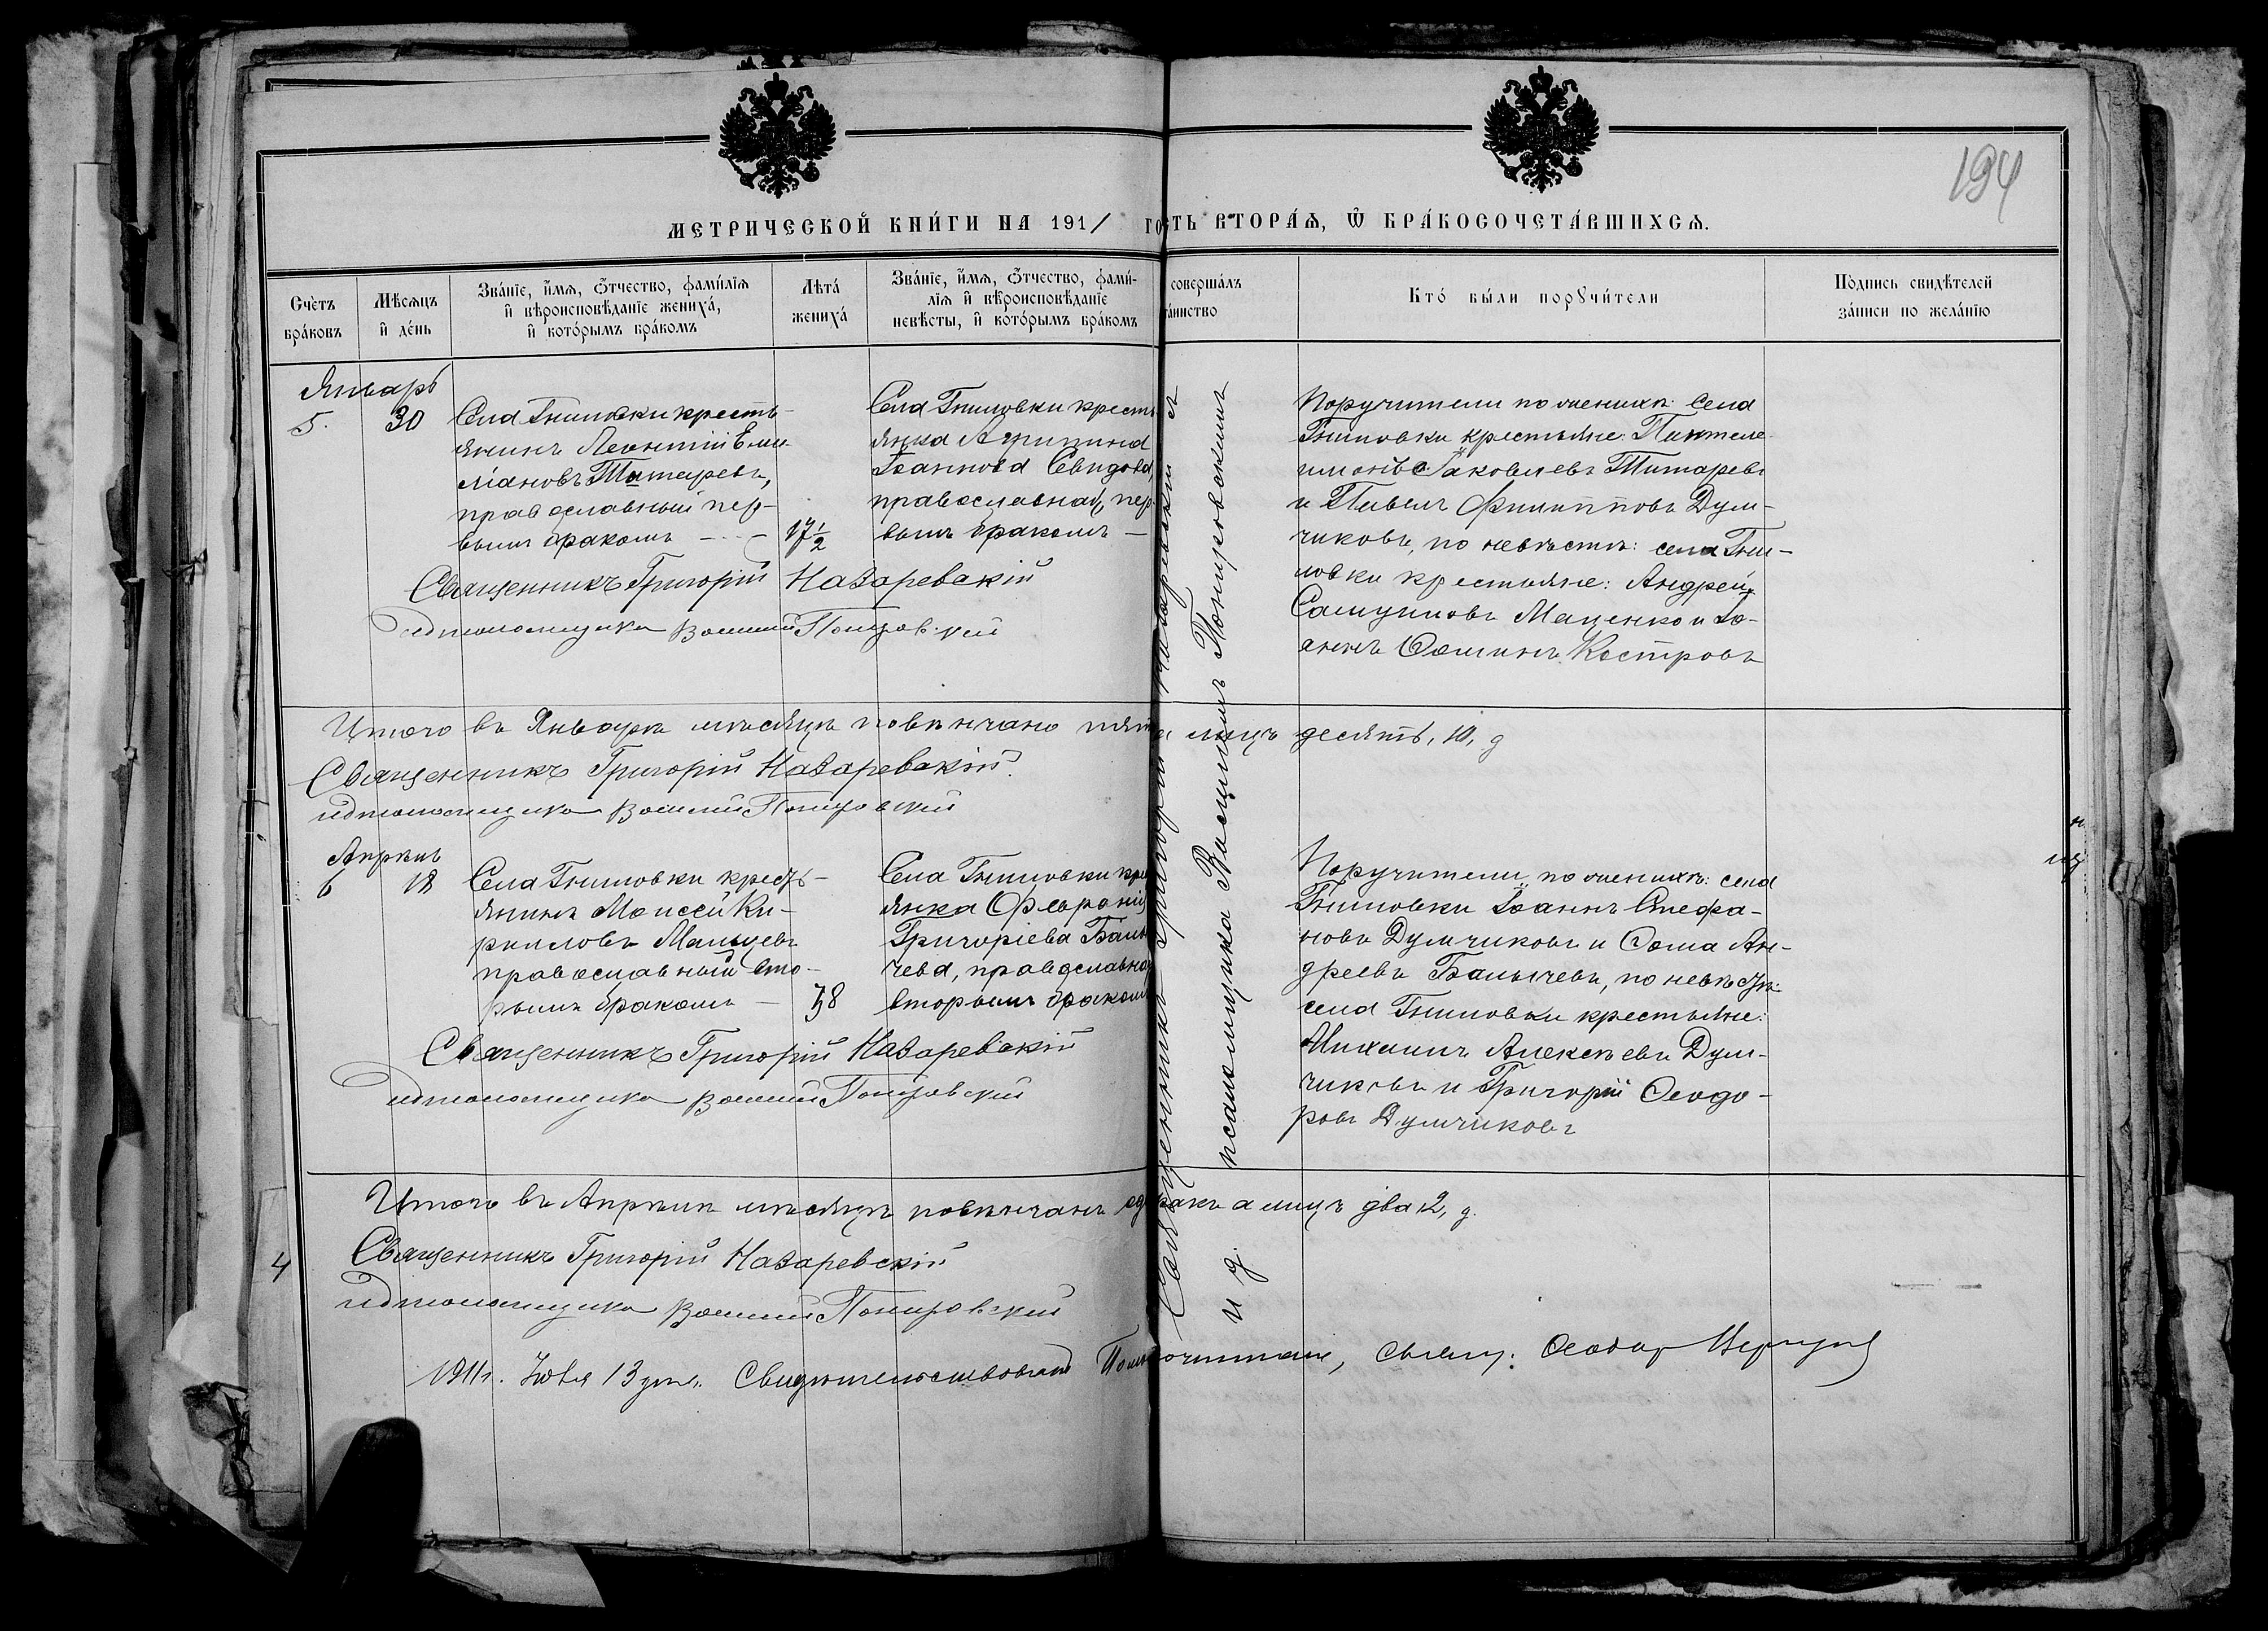 194
МЕТРИЧЕСКОЙ КНИ́ГИ НА 1911 ГО
СТЬ ВТОРА́Я, Ѡ БРА́КОСОЧЕТА́ВШИХСЯ.
Сче́тъ бра́ковъ
Мѣ́сяцъ и де́нь
Зва́нїе, и́мя, ѻ҆́тчество, фами́лїя и вѣроисповѣ́данїе жениха́, и кото́рымъ бра́комъ
Лѣта́ жениха́
Зва́нїе, и́мя, ѻ҆́тчество, фами́лїя и вѣроисповѣ́данїе невѣ́сты, и кото́рымъ бра́комъ
соверша́лъ
та́инство
Кто́ бы́ли порꙋчи́тели
По́дпись свидѣ́телей за́писи по жела́нїю
Январь
5. 30
Села Гниловки кресть-
янинъ Леонтій Еми-
ліановъ Титаревъ,
православный пер-
вымъ бракомъ
17 1/2
Села Гниловки кресть
янка Агрипина
Іоаннова Севидова,
православная, пер-
вымъ бракомъ —
Поручители по женихѣ: села
Гниловки крестьяне: Пантеле
имонъ Іаковлевъ Титаревъ
и Павелъ Филипповъ Дум-
чиковъ, по невѣстѣ: села Гни-
ловки крестьяне: Андрей
Самуиловъ Маценко и Іо-
аннъ Ѳоминъ Костровъ
Священникъ Григорій Назаревскій
и д псаломщика Василій Понировскій
Итого въ Январѣ мѣсяцѣ повѣнчано пять
а лицъ десять, 10, д
Священникъ Григорій Назаревскій.
и д псаломщика Василій Понировскій
Апрѣль
6 18
Села Гниловки кресть-
янинъ Моисей Ки-
рилловъ Мальцевъ
православный вто-
рымъ бракомъ —
38
Села Гниловки кре
янка Февронія
Григоріева Балы
чева, православная
вторымъ бракомъ
Поручители, по женихѣ: села
Гниловки Іоаннъ Стефа-
новъ Думчиковъ и Ѳома Ан-
дреевъ Балычевъ, по невѣстѣ:
села Гниловки крестьяне:
Михаилъ Алексѣевъ Дум-
чиковъ и Григорій Ѳеодо-
ровъ Думчиковъ
Священникъ Григорій Назаревскій
и д псаломщика Василій Понировскій
Священникъ Григорій Назаревскій съ
и д. псаломщика Василіемъ Понировскимъ
Итого въ Апрѣлѣ мѣсяцѣ повѣнчанъ од
бракъ а лицъ два 2, д.
4
Священникъ Григорій Назаревскій
и д псаломщика Василій Понировскій
1911 г. 13 дня. Свидѣтельствовалъ
Ѳеодор